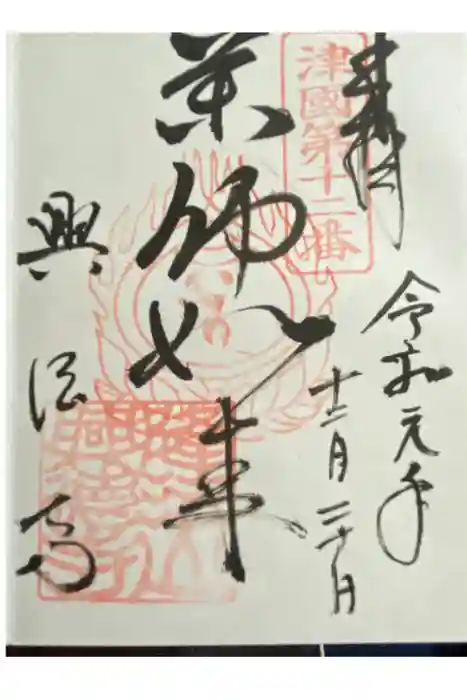 奉拝
令和元年
十二月二十日
津國第十二番
薬師如来
興法寺